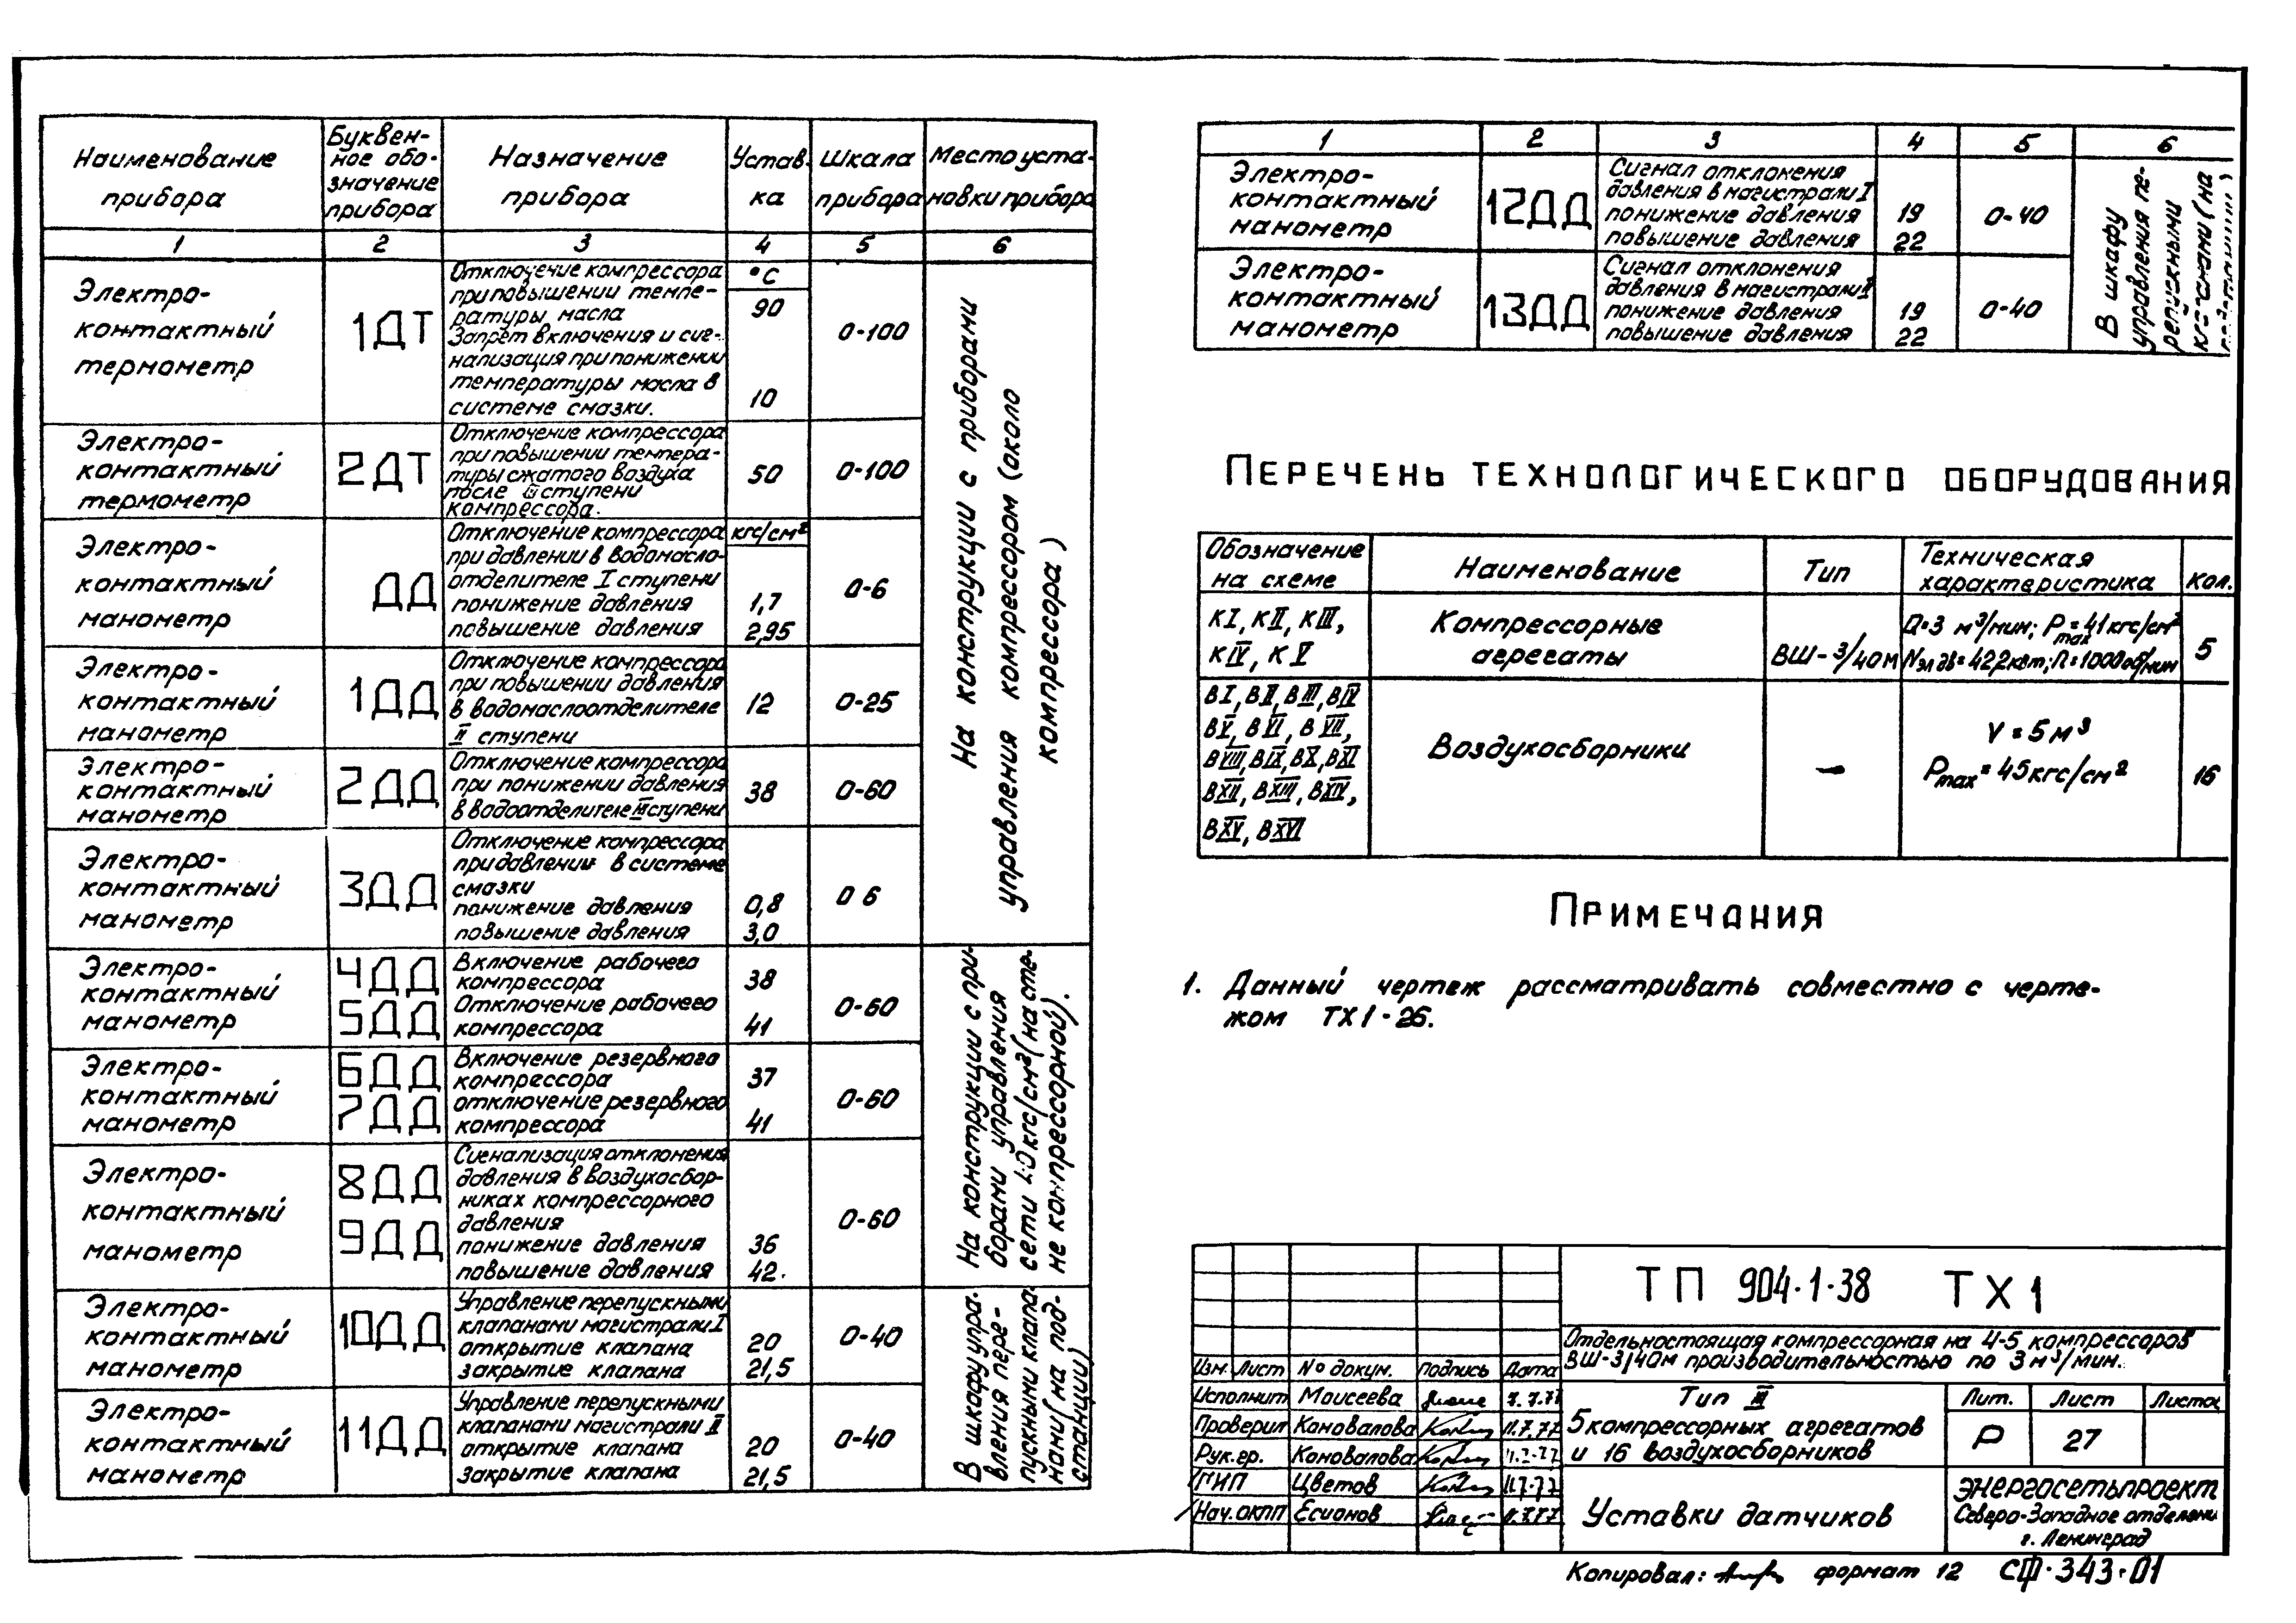 Наименование прибора
Буквен-
ное обо-
значение
прибора
Назначение прибора
Устав-
ка
Шкала прибора
Место уста-
новки прибора
1 2 3 4 5 6
Электро-
контактный
термометр
1ДТ
Отключение компрессора
при повышении темпе-
ратуры масла
Запрет включения и сиг-
нализация при понижении
температуры масла в
системе смазки.
°С
90
10
0-100
Электро-
контактный
термометр
2ДТ
Отключение компрессора
при повышении темпера-
туры сжатого воздуха
после III ступени
компрессора.
50
0-100
Электро-
контактный
манометр
ДД
Отключение компрессора
при давлении в водомасло-
отделителе I ступени
понижение давления
повышение давления
кгс/см²
1,7
2,95
0-6
Электро-
контактный
манометр
1ДД
Отключение компрессора
при повышении давления
в водомаслоотделителе
II ступени
12
0-25
Электро-
контактный
манометр
2ДД
Отключение компрессора
при понижении давления
в водоотделителе III ступени
38
0-60
Электро-
контактный
манометр
3ДД
Отключение компрессора
при давлении в системе
смазки
понижение давления
повышение давления
0,8
3,0
0 6
На конструкции с приборами
управления компрессором (около
компрессора)
Электро-
контактный
манометр
4ДД
5ДД
Включение рабочего
компрессора
Отключение рабочего
компрессора
38
41
0-60
Электро-
контактный
манометр
6ДД
7ДД
Включение резервного
компрессора
отключение резервного
компрессора
37
41
0-60
Электро-
контактный
манометр
8ДД
9ДД
Сигнализация отклонения
давления в воздухосбор-
никах компрессорного
давления
понижение давления
повышение давления
36
42.
0-60
На конструкции с при-
борами управления
сети 40кгс/см² (на сте-
не компрессорной).
Электро-
контактный
манометр
10ДД
Управление перепускными
клапанами магистрали I
открытие клапана
закрытие клапана
20
21,5
0-40
Электро-
контактный
манометр
11ДД
Управление перепускными
клапанами магистрали II
открытие клапана
закрытие клапана
20
21,5
0-40
В шкафу упра-
вления пере-
пускными клапа-
нами (на под-
станции)
1 2 3 4 5 6
Электро-
контактный
манометр
12ДД
Сигнал отклонения
давления в магистрали I
понижение давления
повышение давления
19
22
0-40
Электро-
контактный
манометр
13ДД
Сигнал отклонения
давления в магистрали II
понижение давления
повышение давления
19
22
0-40
В шкафу
управления пе-
репускными
Перечень технологического оборудования
Обозначение
на схеме
Наименование
Тип
Техническая
характеристика
кол.
КI, КII, КIII,
КIV, КV
Компрессорные
агрегаты
ВШ-3/40М
Q=3 м³/мин; Pmax=41кгс/см²
Nэл дв=42,2квт; n=1000об/мин
5
ВI, ВII, ВIII, ВIV
ВV, ВVI, ВVII,
ВVIII, ВIX, ВX, ВXI
ВXII, ВXIII, ВXIV,
ВXV, ВXVI
Воздухосборники
—
V=5м³
Pmax=45кгс/см²
16
Примечания
1. Данный чертеж рассматривать совместно с черте-
жом ТХ1-26.
ТП 904-1-38 ТХ1
Отдельностоящая компрессорная на 4-5 компрессоров
ВШ-3/40м производительностью по 3м³/мин.
Изм. Лист № докум. Подпись Дата
Исполнит Моисеева
Проверил Коновалова 11.7.77
Рук.гр. Коновалова
ГИП Цветов
Нач.ОКПП
Тип III
5 компрессорных агрегатов
и 16 воздухосборников
Лит. Лист
Р 27
Уставки датчиков
Энергосетьпроект
Северо-Западное
г. Ленинград
Копировал: формат 12 СФ-343-01